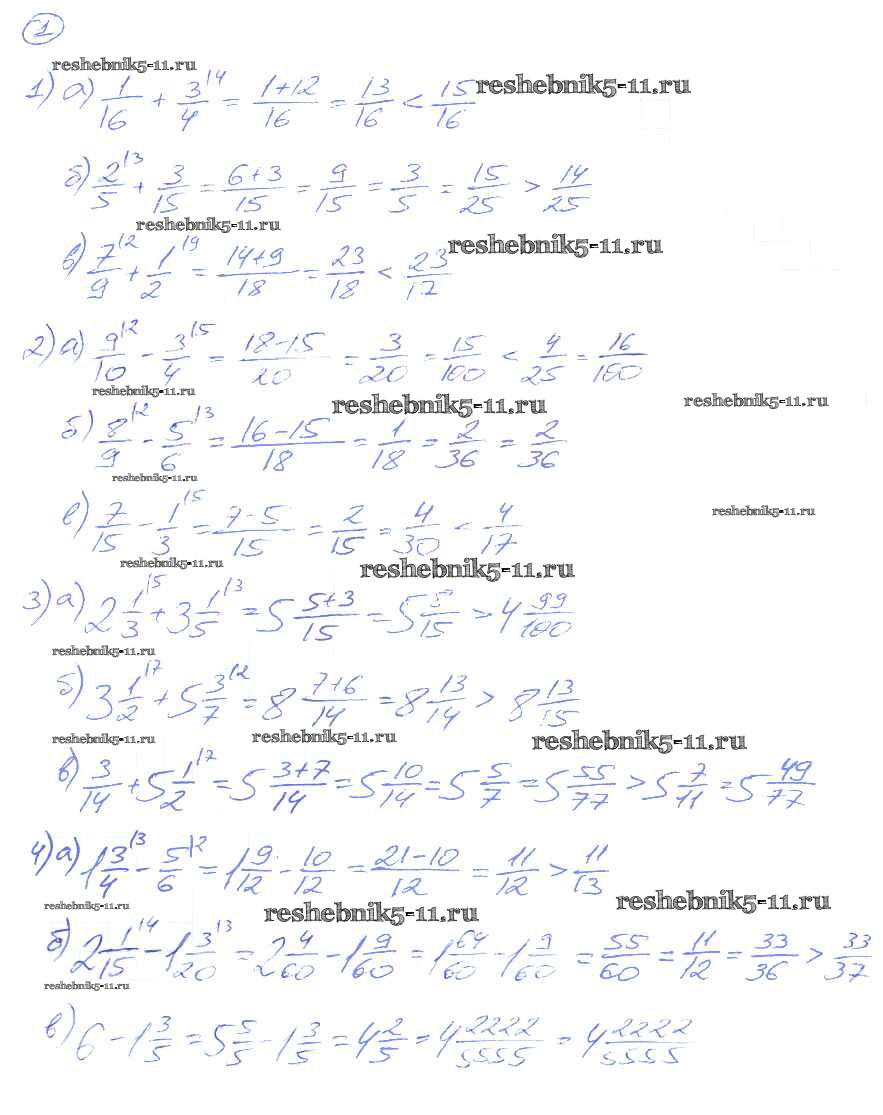 1
reshebnik5-11.ru
1) а) 1/16 + 3/4 |4 = (1+12)/16 = 13/16 < 15/16 reshebnik5-11.ru
б) 2/5 |3 + 3/15 = (6+3)/15 = 9/15 = 3/5 = 15/25 > 14/25
reshebnik5-11.ru
в) 7/9 |2 + 1/2 |9 = (14+9)/18 = 23/18 < 23/17 reshebnik5-11.ru
2) а) 9/10 |2 - 3/4 |5 = (18-15)/20 = 3/20 = 15/100 < 4/25 = 16/100
reshebnik5-11.ru reshebnik5-11.ru reshebnik5-11.ru
б) 8/9 |2 - 5/6 |3 = (16-15)/18 = 1/18 = 2/36 = 2/36
reshebnik5-11.ru
в) 7/15 - 1/3 |5 = (7-5)/15 = 2/15 = 4/30 < 4/17 reshebnik5-11.ru
reshebnik5-11.ru reshebnik5-11.ru
3) а) 2 1/3 |5 + 3 1/5 |3 = 5 (5+3)/15 = 5 8/15 > 4 99/100
reshebnik5-11.ru
б) 3 1/2 |7 + 5 3/7 |2 = 8 (7+6)/14 = 8 13/14 > 8 13/15
reshebnik5-11.ru reshebnik5-11.ru reshebnik5-11.ru
в) 3/14 + 5 1/2 |7 = 5 (3+7)/14 = 5 10/14 = 5 5/7 = 5 55/77 > 5 7/11 = 5 49/77
4) а) 1 3/4 |3 - 5/6 |2 = 1 9/12 - 10/12 = (21-10)/12 = 11/12 > 11/13
reshebnik5-11.ru reshebnik5-11.ru reshebnik5-11.ru
б) 2 1/15 |4 - 1 3/20 |3 = 2 4/60 - 1 9/60 = 1 64/60 - 1 9/60 = 55/60 = 11/12 = 33/36 > 33/37
reshebnik5-11.ru
в) 6 - 1 3/5 = 5 5/5 - 1 3/5 = 4 2/5 = 4 2222/5555 = 4 2222/5555